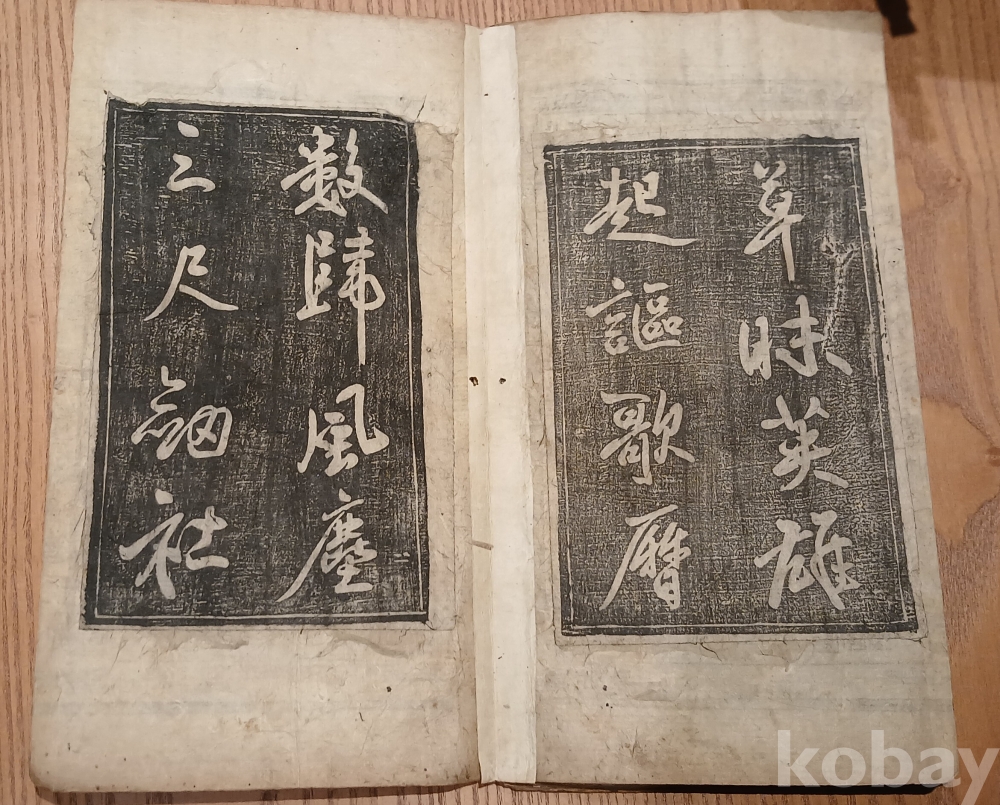 草昧英雄
起謳歌曆
數歸風塵
三尺劒社
kobay